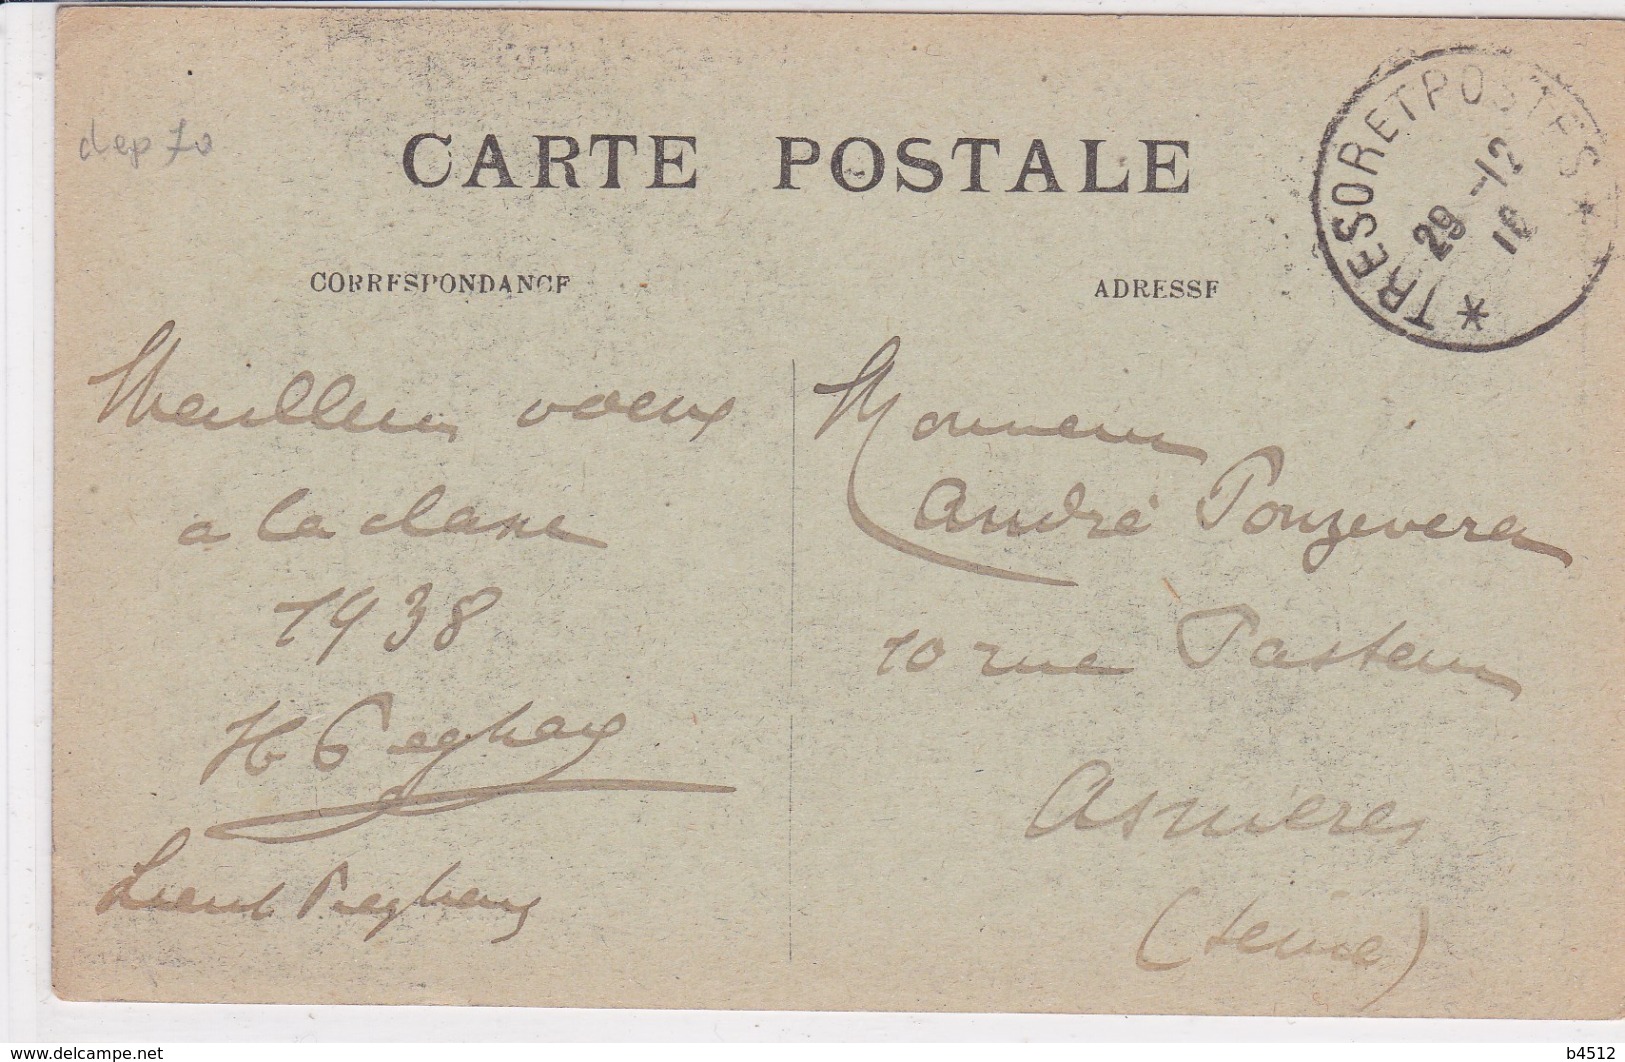 dep 70
CARTE POSTALE
TRESOR ET POSTES
29 -12
16
CORRESPONDANCE
ADRESSE
Meilleurs voeux
a la classe
1938
H Peghay
Lieut Peghay
Monsieur
André Ponzevera
10 rue Pasteur
Asnieres
(Seine)
www.delcampe.net
b4512